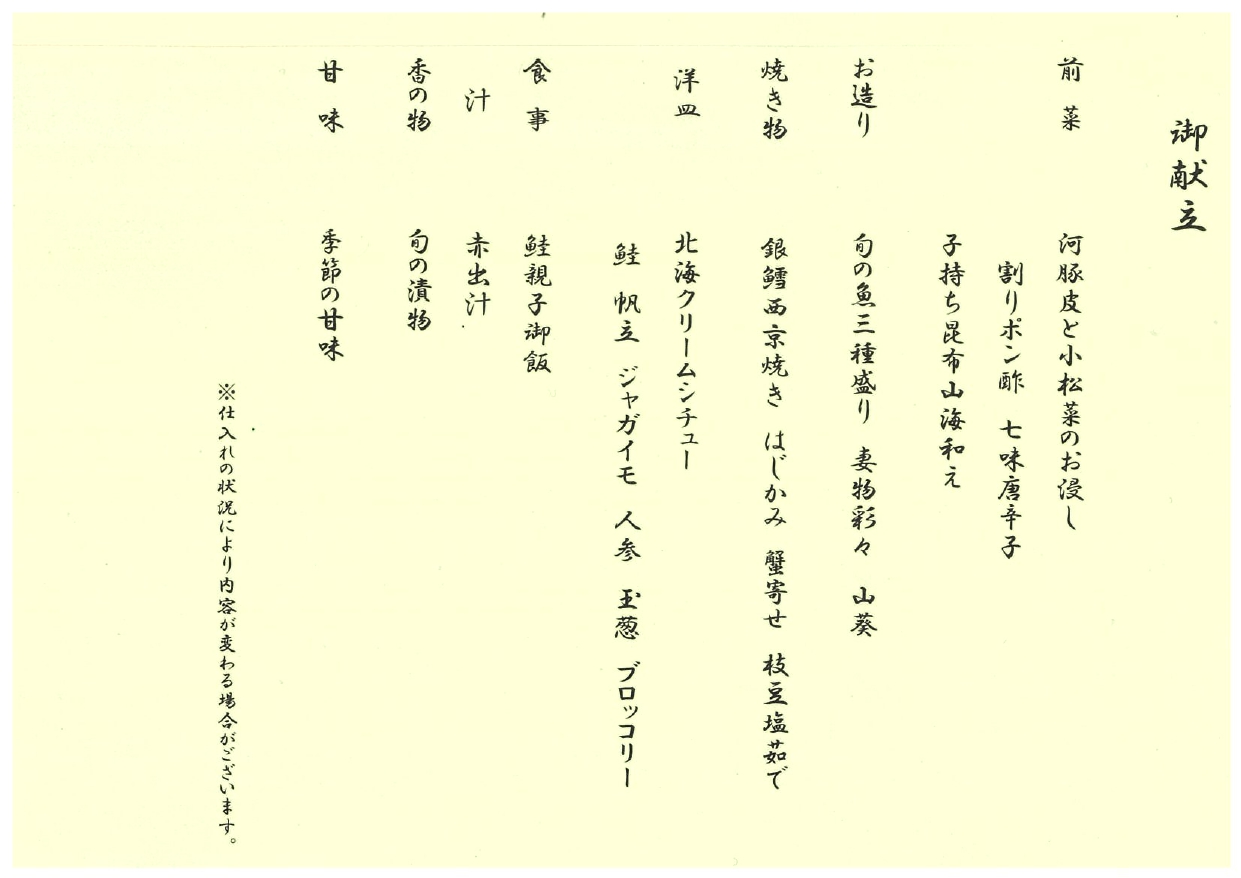 御献立
前菜　河豚皮と小松菜のお浸し
割りポン酢　七味唐辛子
子持ち昆布山海和え
お造り　旬の魚三種盛り　妻物彩々　山葵
焼き物　銀鱈西京焼き　はじかみ　蟹寄せ　枝豆塩茹で
洋皿　北海クリームシチュー
鮭　帆立　ジャガイモ　人参　玉葱　ブロッコリー
食事　鮭親子御飯
汁　赤出汁
香の物　旬の漬物
甘味　季節の甘味
※仕入れの状況により内容が変わる場合がございます。